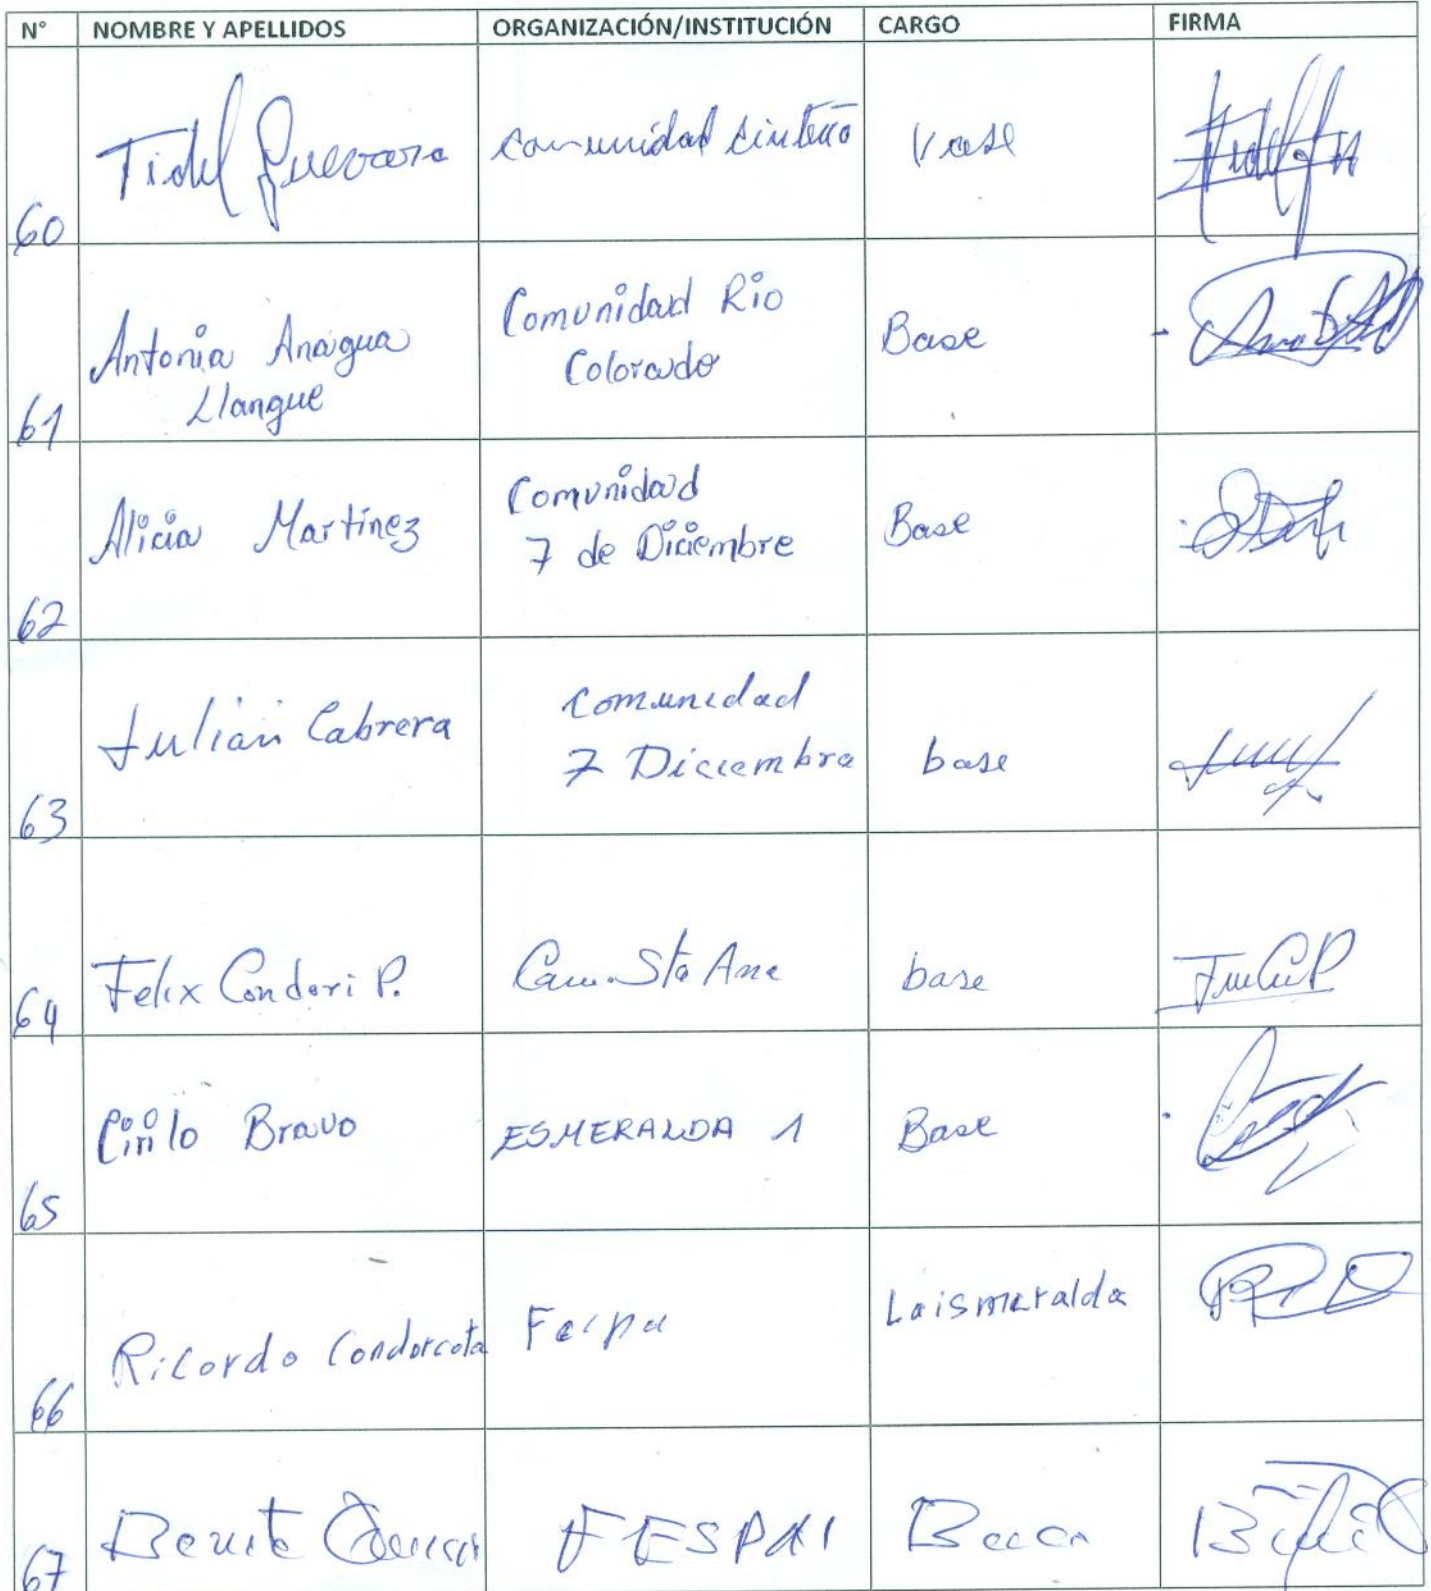 N° NOMBRE Y APELLIDOS ORGANIZACIÓN/INSTITUCIÓN CARGO FIRMA
60 Fidel Guevara Comunidad Vase
61 Antonia Anagua Llangue Comunidad Rio Colorado Base
62 Alicia Martinez Comunidad 7 de Diciembre Base
63 Julian Cabrera Comunidad 7 Diciembre base
64 Felix Condori P. Com. Sta Ana base
65 Cirilo Bravo ESMERALDA 1 Base
66 Ricordo Condorcota Laismeralda
67 Benito